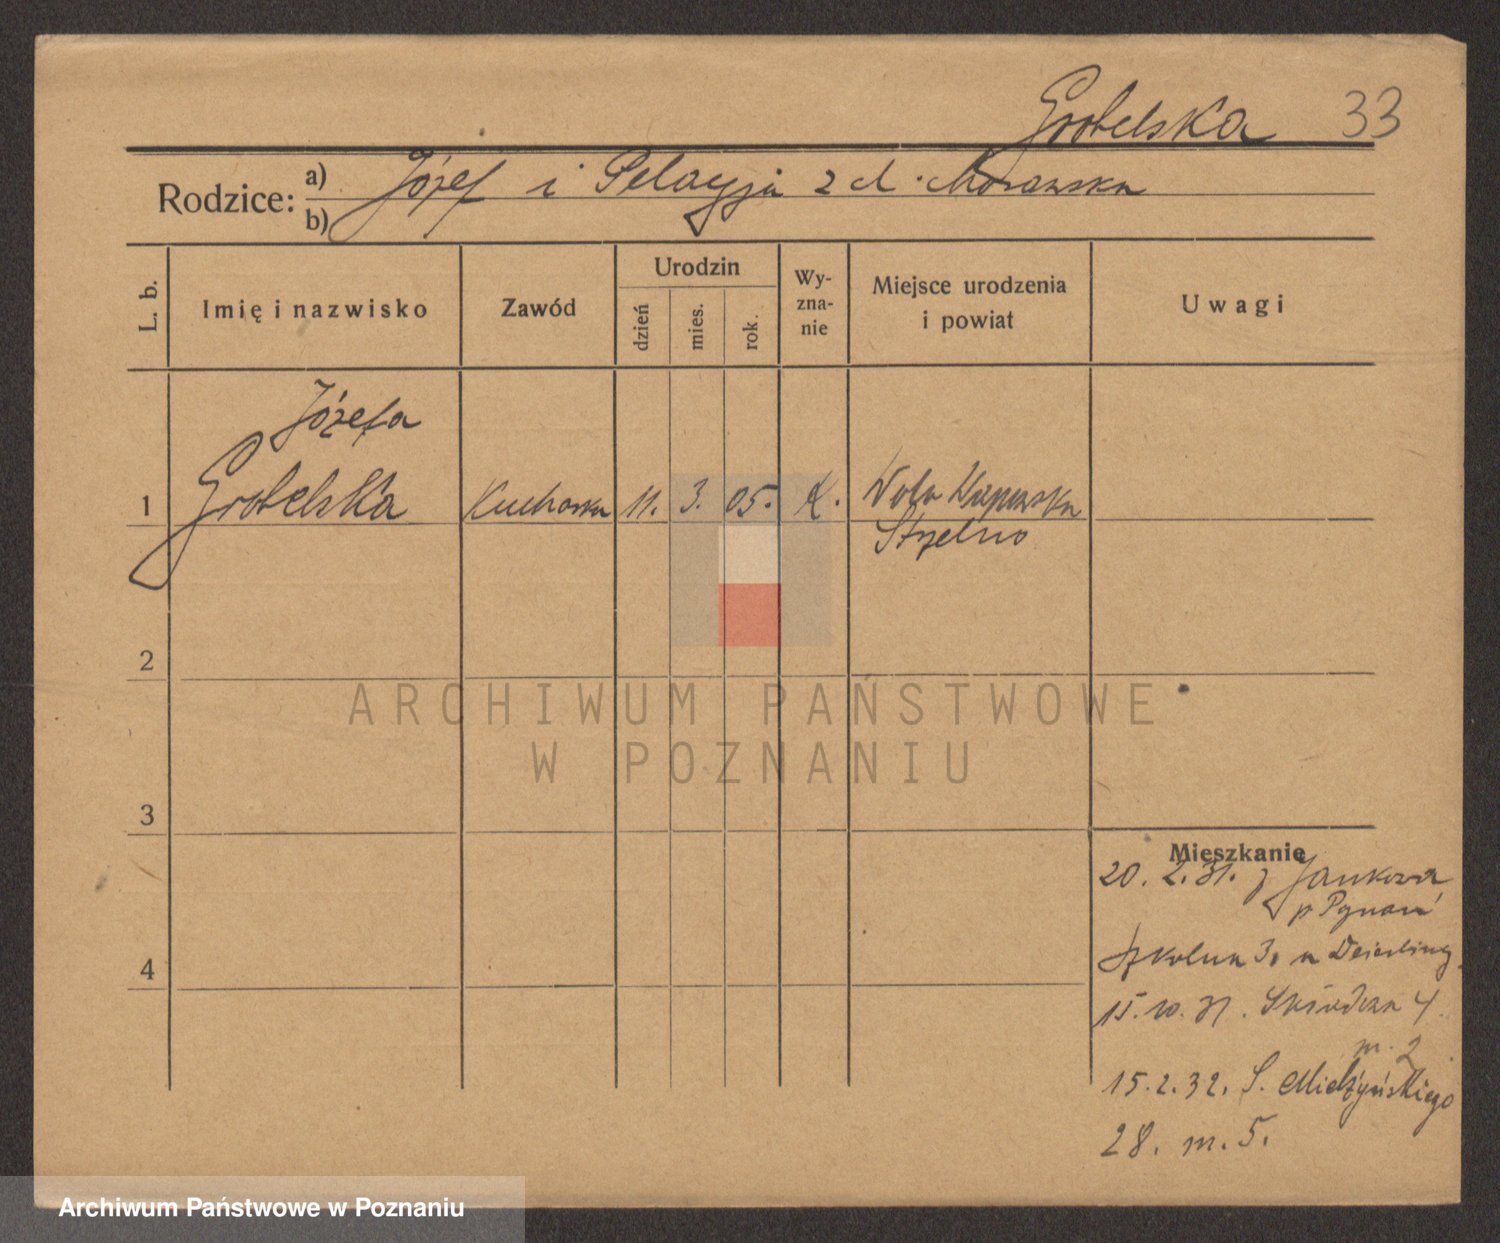 Grobelska 33
Rodzice: a) Józef i Pelagja z d. Morawska
b)
L. b.
Imię i nazwisko
Zawód
Urodzin
dzień
mies.
rok.
Wy-
zna-
nie
Miejsce urodzenia
i powiat
Uwagi
Józefa
1 Grobelska Kucharka 11. 3. 05. K. Wola
Strzelno
2
3
4
Mieszkanie
20. 2. 31. z Jankowa
p Poznań
Szkolna 3. u
15. 10. 31. Skośna 4
m. 2
15. 2. 32. S. Mielżyńskiego
28. m. 5.
ARCHIWUM PAŃSTWOWE
W POZNANIU
Archiwum Państwowe w Poznaniu